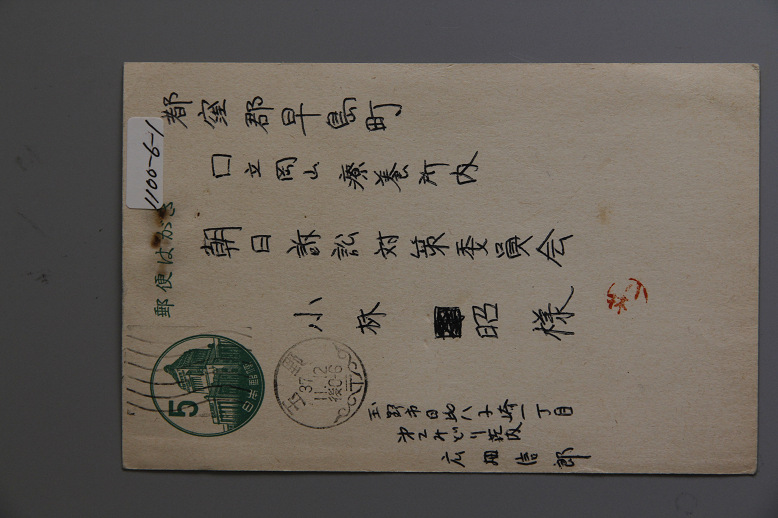 1100-6-1
郵便はがき
5
日本郵便
玉野
37.
11.12
後0-6
都窪郡早島町
口立岡山療養所内
朝日訴訟対策委員会
小林 昭様
玉野市日比八丁崎一丁目
みどり荘内
広田信郎